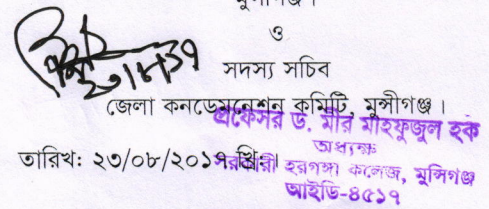 মুন্সীগঞ্জ।
ও
সদস্য সচিব
জেলা কনডেমনেশন কমিটি, মুন্সীগঞ্জ।
প্রফেসর ড. মীর মাহফুজুল হক
অধ্যক্ষ
তারিখ: ২৩/০৮/২০১৭ খ্রি:।
সরকারী হরগঙ্গা কলেজ, মুন্সিগঞ্জ
আইডি-৪৫১৭